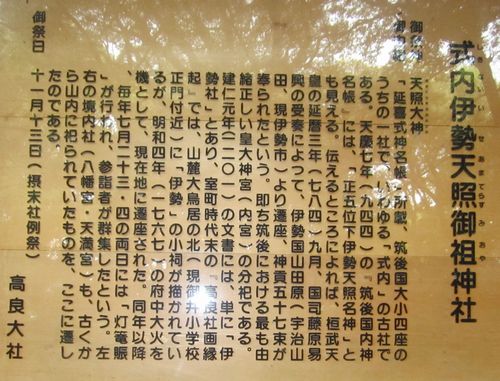 式内伊勢天照御祖神社
いせあまてらすみおや
御祭神 天照大神
「延喜式神名帳」所載、筑後国大小四座の
うちの一社で、いわゆる「式内」の古社で
ある。天慶七年(九四四)の『筑後国内神
名帳』には、「正五位下伊勢天照名神」と
も見える。伝えるところによれば、桓武天
皇の延暦三年(七八四)九月、国司藤原易
興の受奏によって、伊勢国山田原(宇治山
田、現伊勢市)より遷座、神貢五十七束が
奉られたという。即ち筑後における最も由
緒正しい皇大神宮(内宮)の分祀である。
建仁元年(一二〇一)の文書には、単に「伊
勢社」とあり、室町時代末の『高良社画縁
起』では、山麓大鳥居の北(現御井小学校
正門付近)に「伊勢」の小祠が描かれてい
るが、明和四年(一七六七)の府中大火を
機として、現在地に遷座された。同年以降
、毎年七月二十三・四の両日には「灯竜賑
」が行われ、参詣者が群集したという。左
右の境内社(八幡宮・天満宮)も、古くか
ら山内に祀られていたものを、ここに遷し
たのである。
御祭日 十一月十三日(摂末社例祭)
高良大社